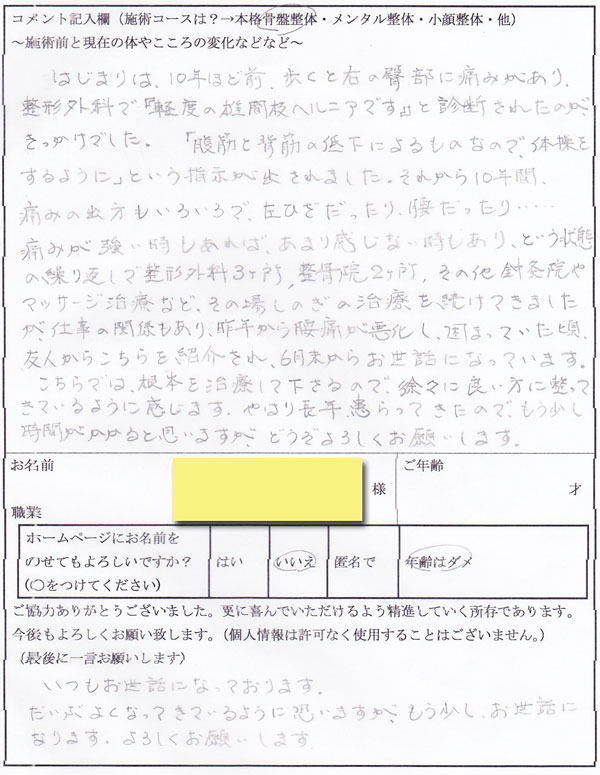 コメント記入欄（施術コースは？→本格骨盤整体・メンタル整体・小顔整体・他）
～施術前と現在の体やこころの変化などなど～
はじまりは、10年ほど前、歩くと右の臀部に痛みがあり、
整形外科で「軽度の椎間板ヘルニアです」と診断されたのが、
きっかけでした。「腹筋と背筋の低下によるものなので、体操を
するように」という指示が出されました。それから10年間、
痛みの出方もいろいろで、左ひざだったり、腰だったり……
痛みが強い時もあれば、あまり感じない時もあり、という状態
の繰り返しで整形外科3ヶ所、整骨院2ヶ所、その他針灸院や
マッサージ治療など、その場しのぎの治療を続けてきました
が、仕事の関係もあり、昨年から腰痛が悪化し、困まっていた頃、
友人からこちらを紹介され、6月末からお世話になっています。
こちらでは、根本を治療して下さるので、徐々に良い方に整って
きているように感じます。やはり長年、患らってきたので、もう少し
時間がかかると思いますが、どうぞよろしくお願いします。
お名前 様 ご年齢 才
職業
ホームページにお名前を
のせてもよろしいですか？ はい いいえ 匿名で 年齢はダメ
（○をつけてください）
ご協力ありがとうございました。更に喜んでいただけるよう精進していく所存であります。
今後もよろしくお願い致します。（個人情報は許可なく使用することはございません。）
（最後に一言お願いします）
いつもお世話になっております。
だいぶよくなってきているように思いますが、もう少し、お世話に
なります。よろしくお願いします。